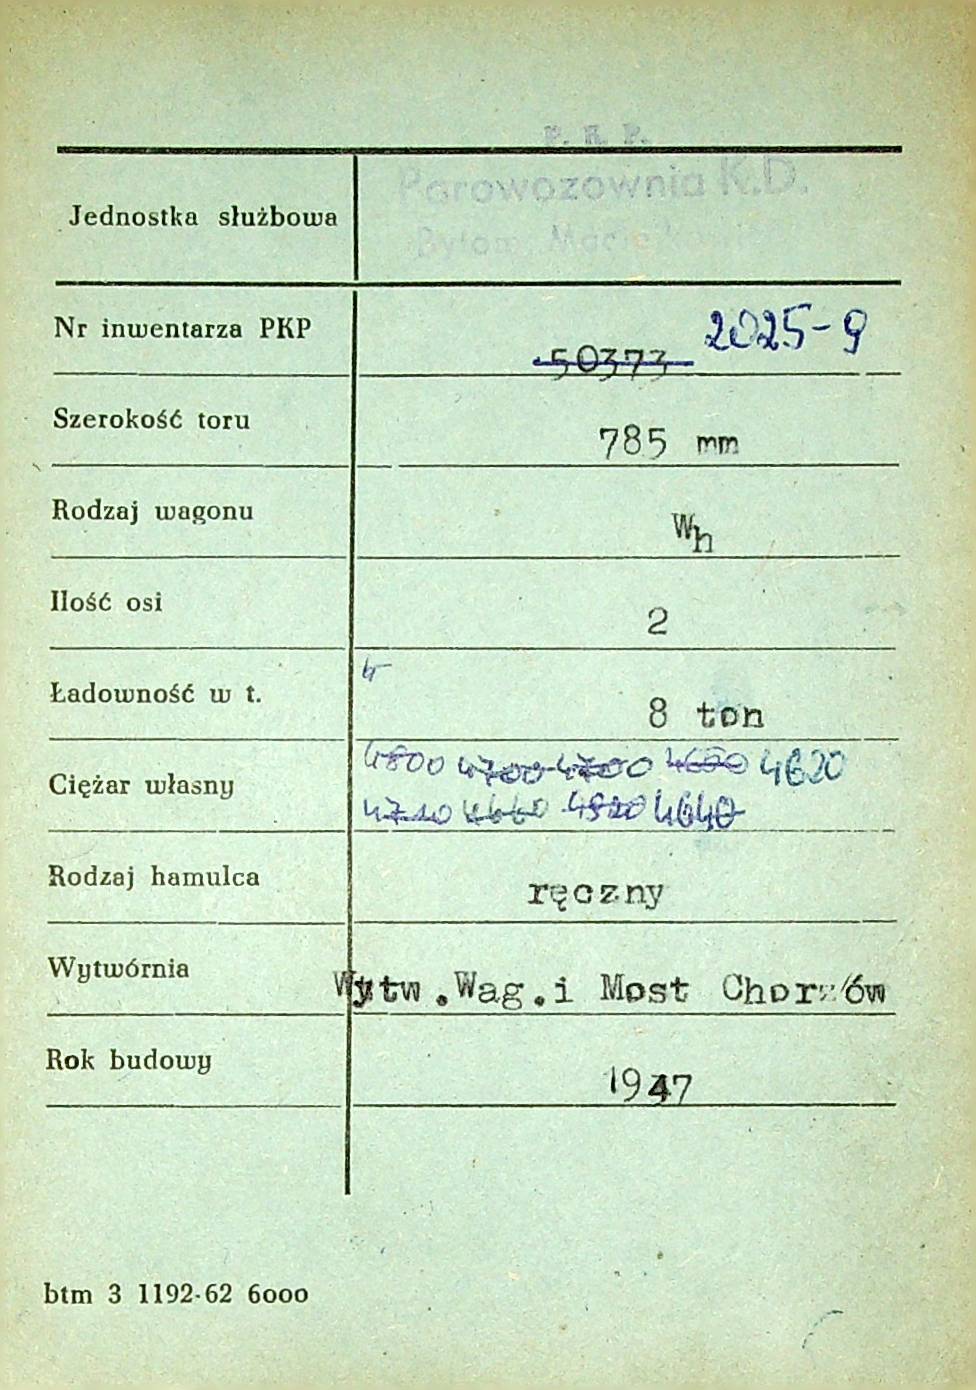 P. K. P.
Parowozownia K.D.
Jednostka służbowa
Bytom
Nr inwentarza PKP 50373 2025-9
Szerokość toru 785 mm
Rodzaj wagonu Wh
Ilość osi 2
Ładowność w t. 8 ton
4800 4700 4700 4680 4620
Ciężar własny
4710 4660 4820 4640
Rodzaj hamulca ręczny
Wytwórnia Wytw.Wag.i Most Chorzów
Rok budowy 1947
btm 3 1192-62 6000